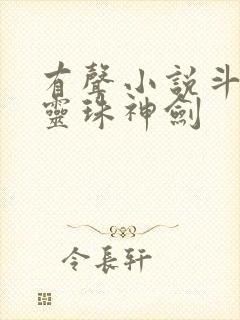 有聲小說斗
靈珠神劍
令長軒